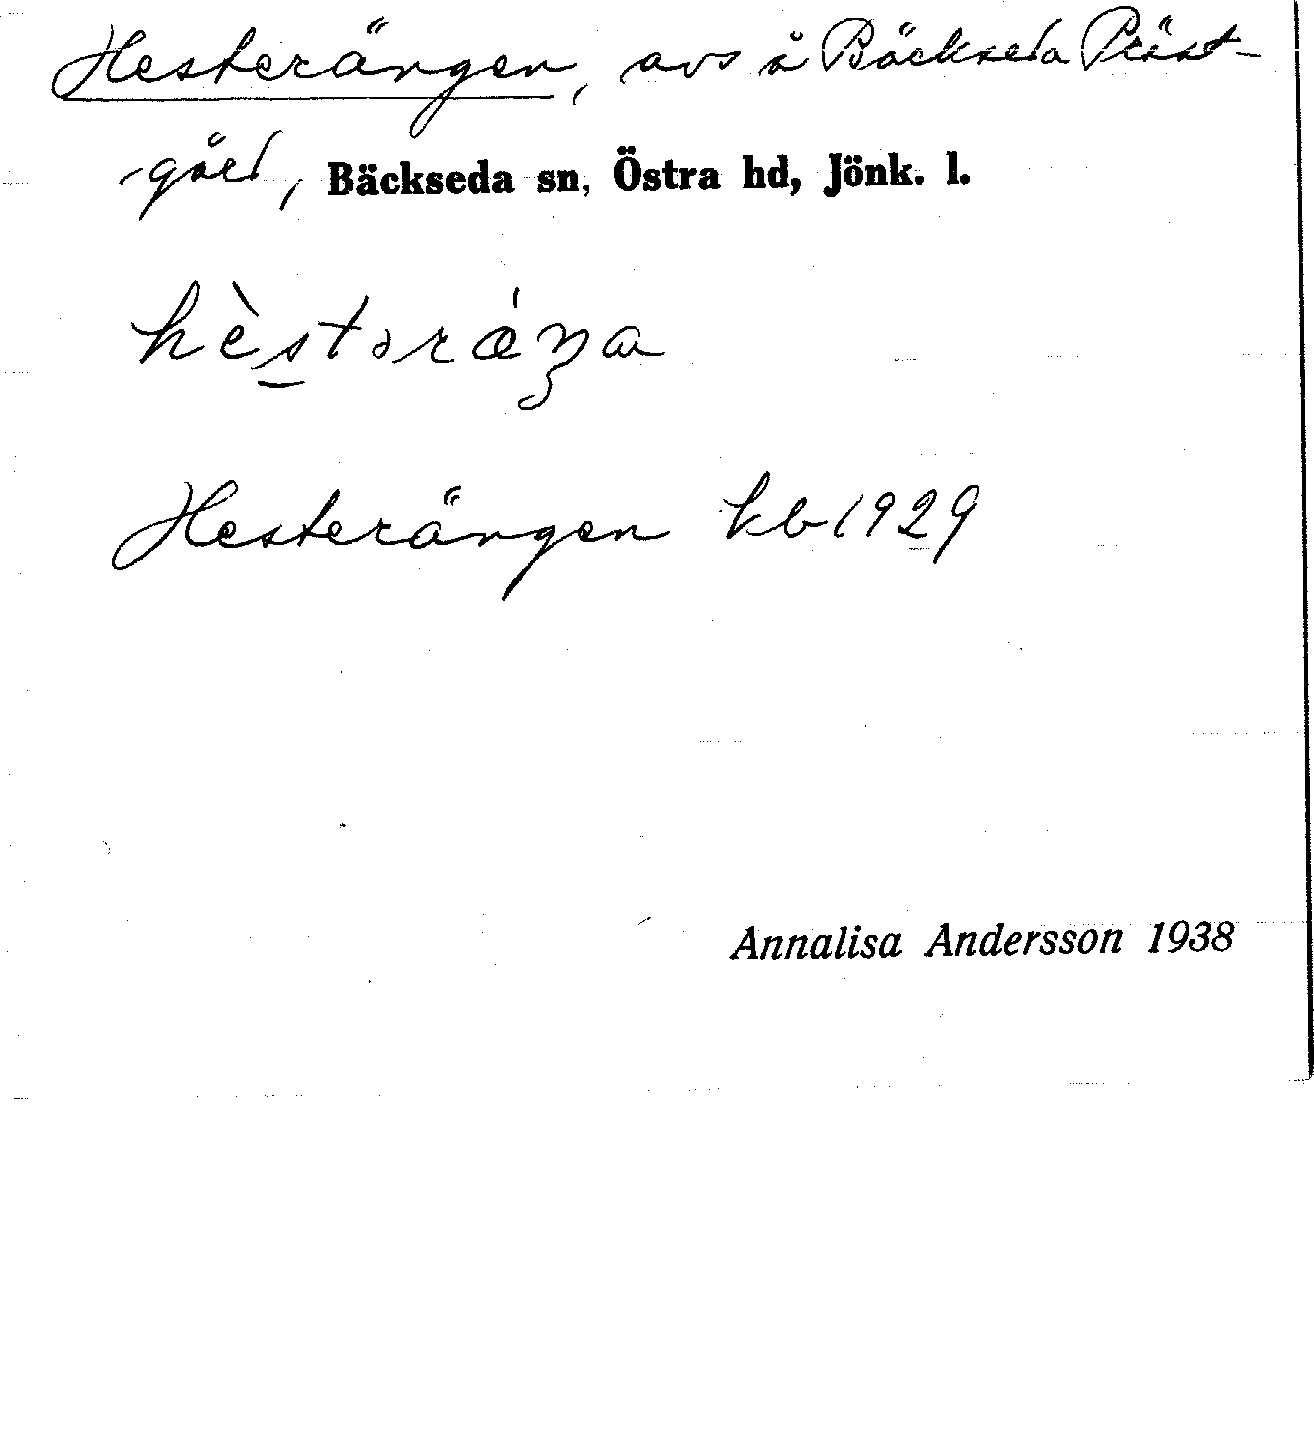 Hesterängen, avs å Bäckseda Präst-
gård, Bäckseda sn, Östra hd, Jönk. l.
hèstəráŋa
Hesterängen kb 1929
Annalisa Andersson 1938